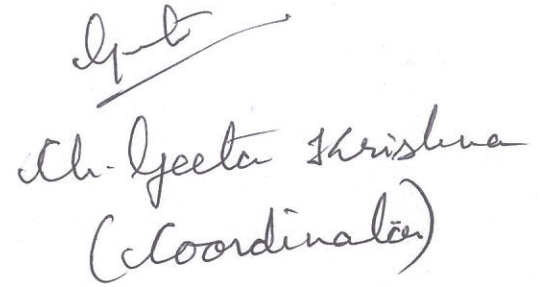 Ch. Geeta Krishna
(Coordinator)